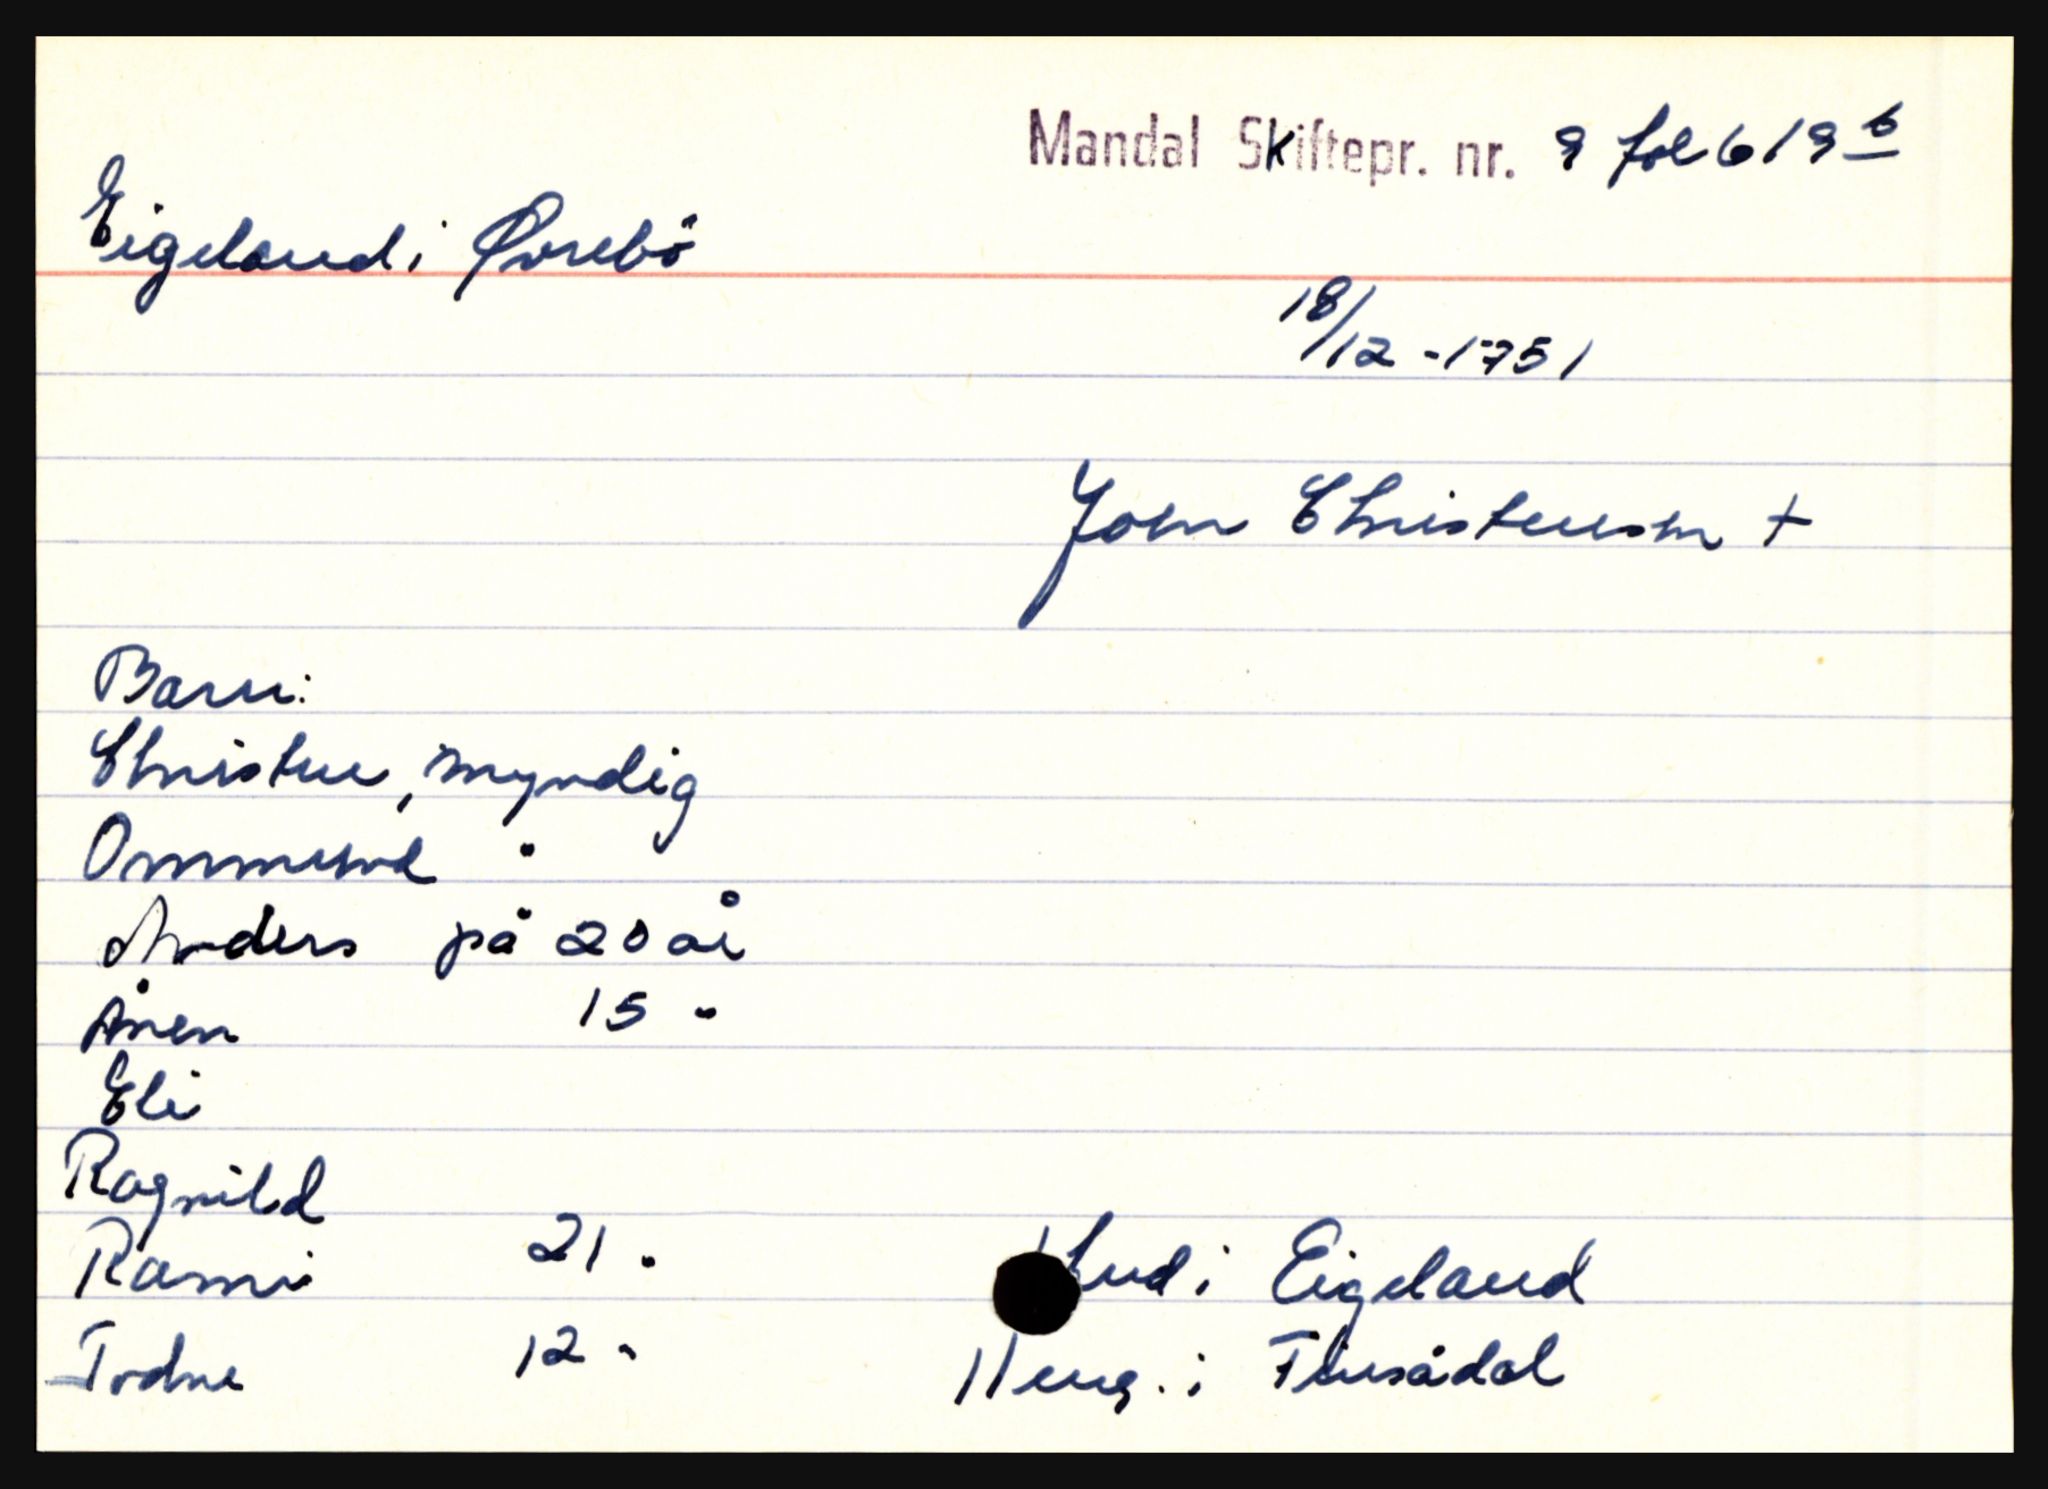 Mandal Skiftepr. nr. 9 fol 619 b
Eigeland i Øvrebö
18/12 - 1751
Joen Christensen +
Barn:
Christen, myndig
Ommund "
Anders på 20 år
Ånen 15 "
Eli
Ragnild
Rami 21 "
1 hud i Eigeland
Todne 12 "
1 eng. i Finsådal